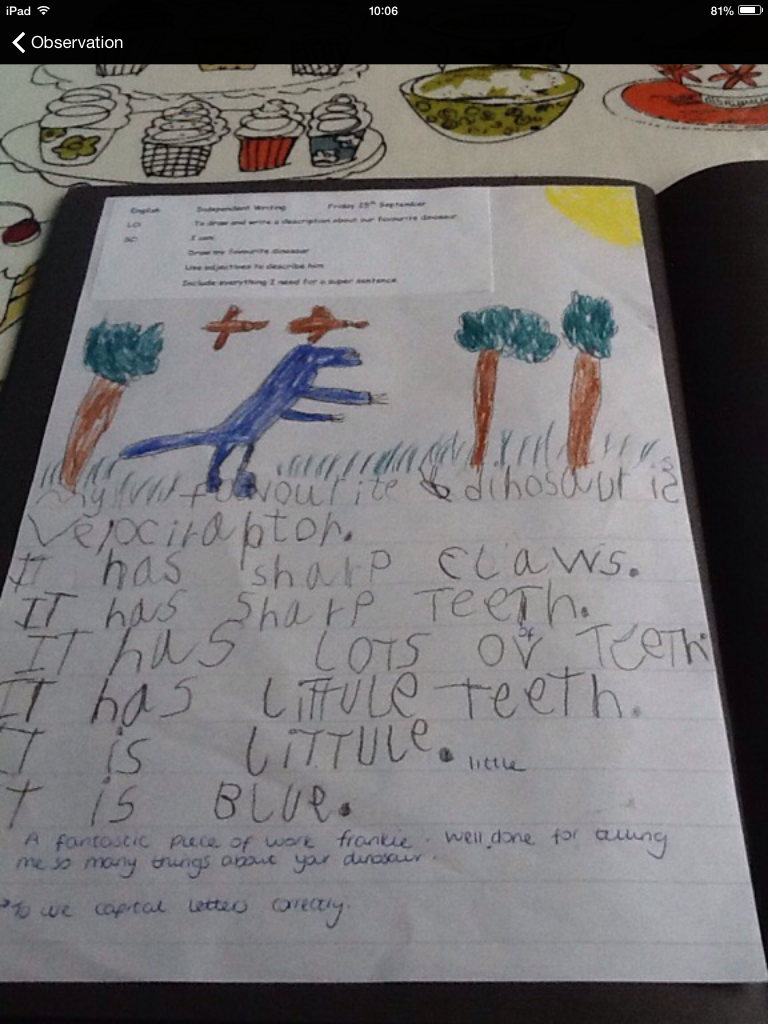 iPad
10:06
81%
Observation
English Independent Writing Friday 25th September
LO: To draw and write a description about our favourite dinosaur
SC: I can:
Draw my favourite dinosaur
Use adjectives to describe him
Include everything I need for a super sentence
My favourite dinosaur is
Velociraptor.
It has sharp claws.
IT has Sharp Teeth.
of
IT has LOTS ov Teeth.
IT has LiTTULe Teeth.
IT is LiTTULe. little
IT is BLUe.
A fantastic piece of work frankie. Well done for telling
me so many things about your dinosaur.
To use capital letters correctly.